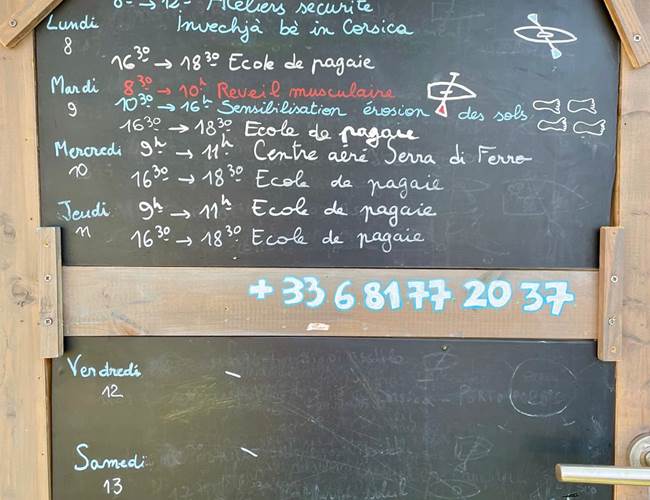 8h → 12h Ateliers sécurité
Lundi Invechjà bè in Corsica
8
16 30 → 18 30 Ecole de pagaie
Mardi 8 30 → 10h Reveil musculaire
9 10 30 → 16h Sensibilisation érosion des sols
16 30 → 18 30 Ecole de pagaie
Mercredi 9h → 11h Centre aéré Serra di Ferro
10 16 30 → 18 30 Ecole de pagaie
Jeudi 9h → 11h Ecole de pagaie
11 16 30 → 18 30 Ecole de pagaie
+33 6 81 77 20 37
Vendredi
12
Samedi
13